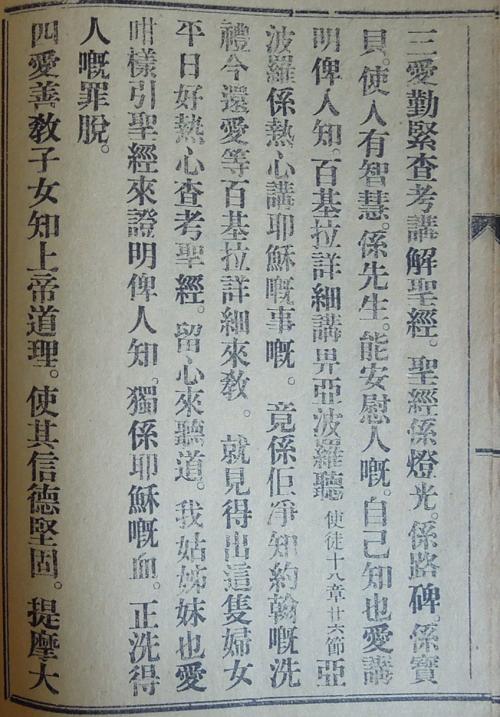 三愛勤緊查考講解聖經。聖經係燈光。係路碑。係寶
貝。使人有智慧。係先生。能安慰人嘅。自己知也愛講
明俾人知。百基拉詳細講畀亞波羅聽 使徒十八章廿六節 亞
波羅係熱心講耶穌嘅事嘅。竟係佢淨知約翰嘅洗
禮今還愛等百基拉詳細來教。就見得出這隻婦女
平日好熱心查考聖經。留心來聽道。我姑姊妹也愛
咁樣引聖經來證明俾人知。獨係耶穌嘅血。正洗得
人嘅罪脫。
四愛善教子女知上帝道理。使其信德堅固。提摩大